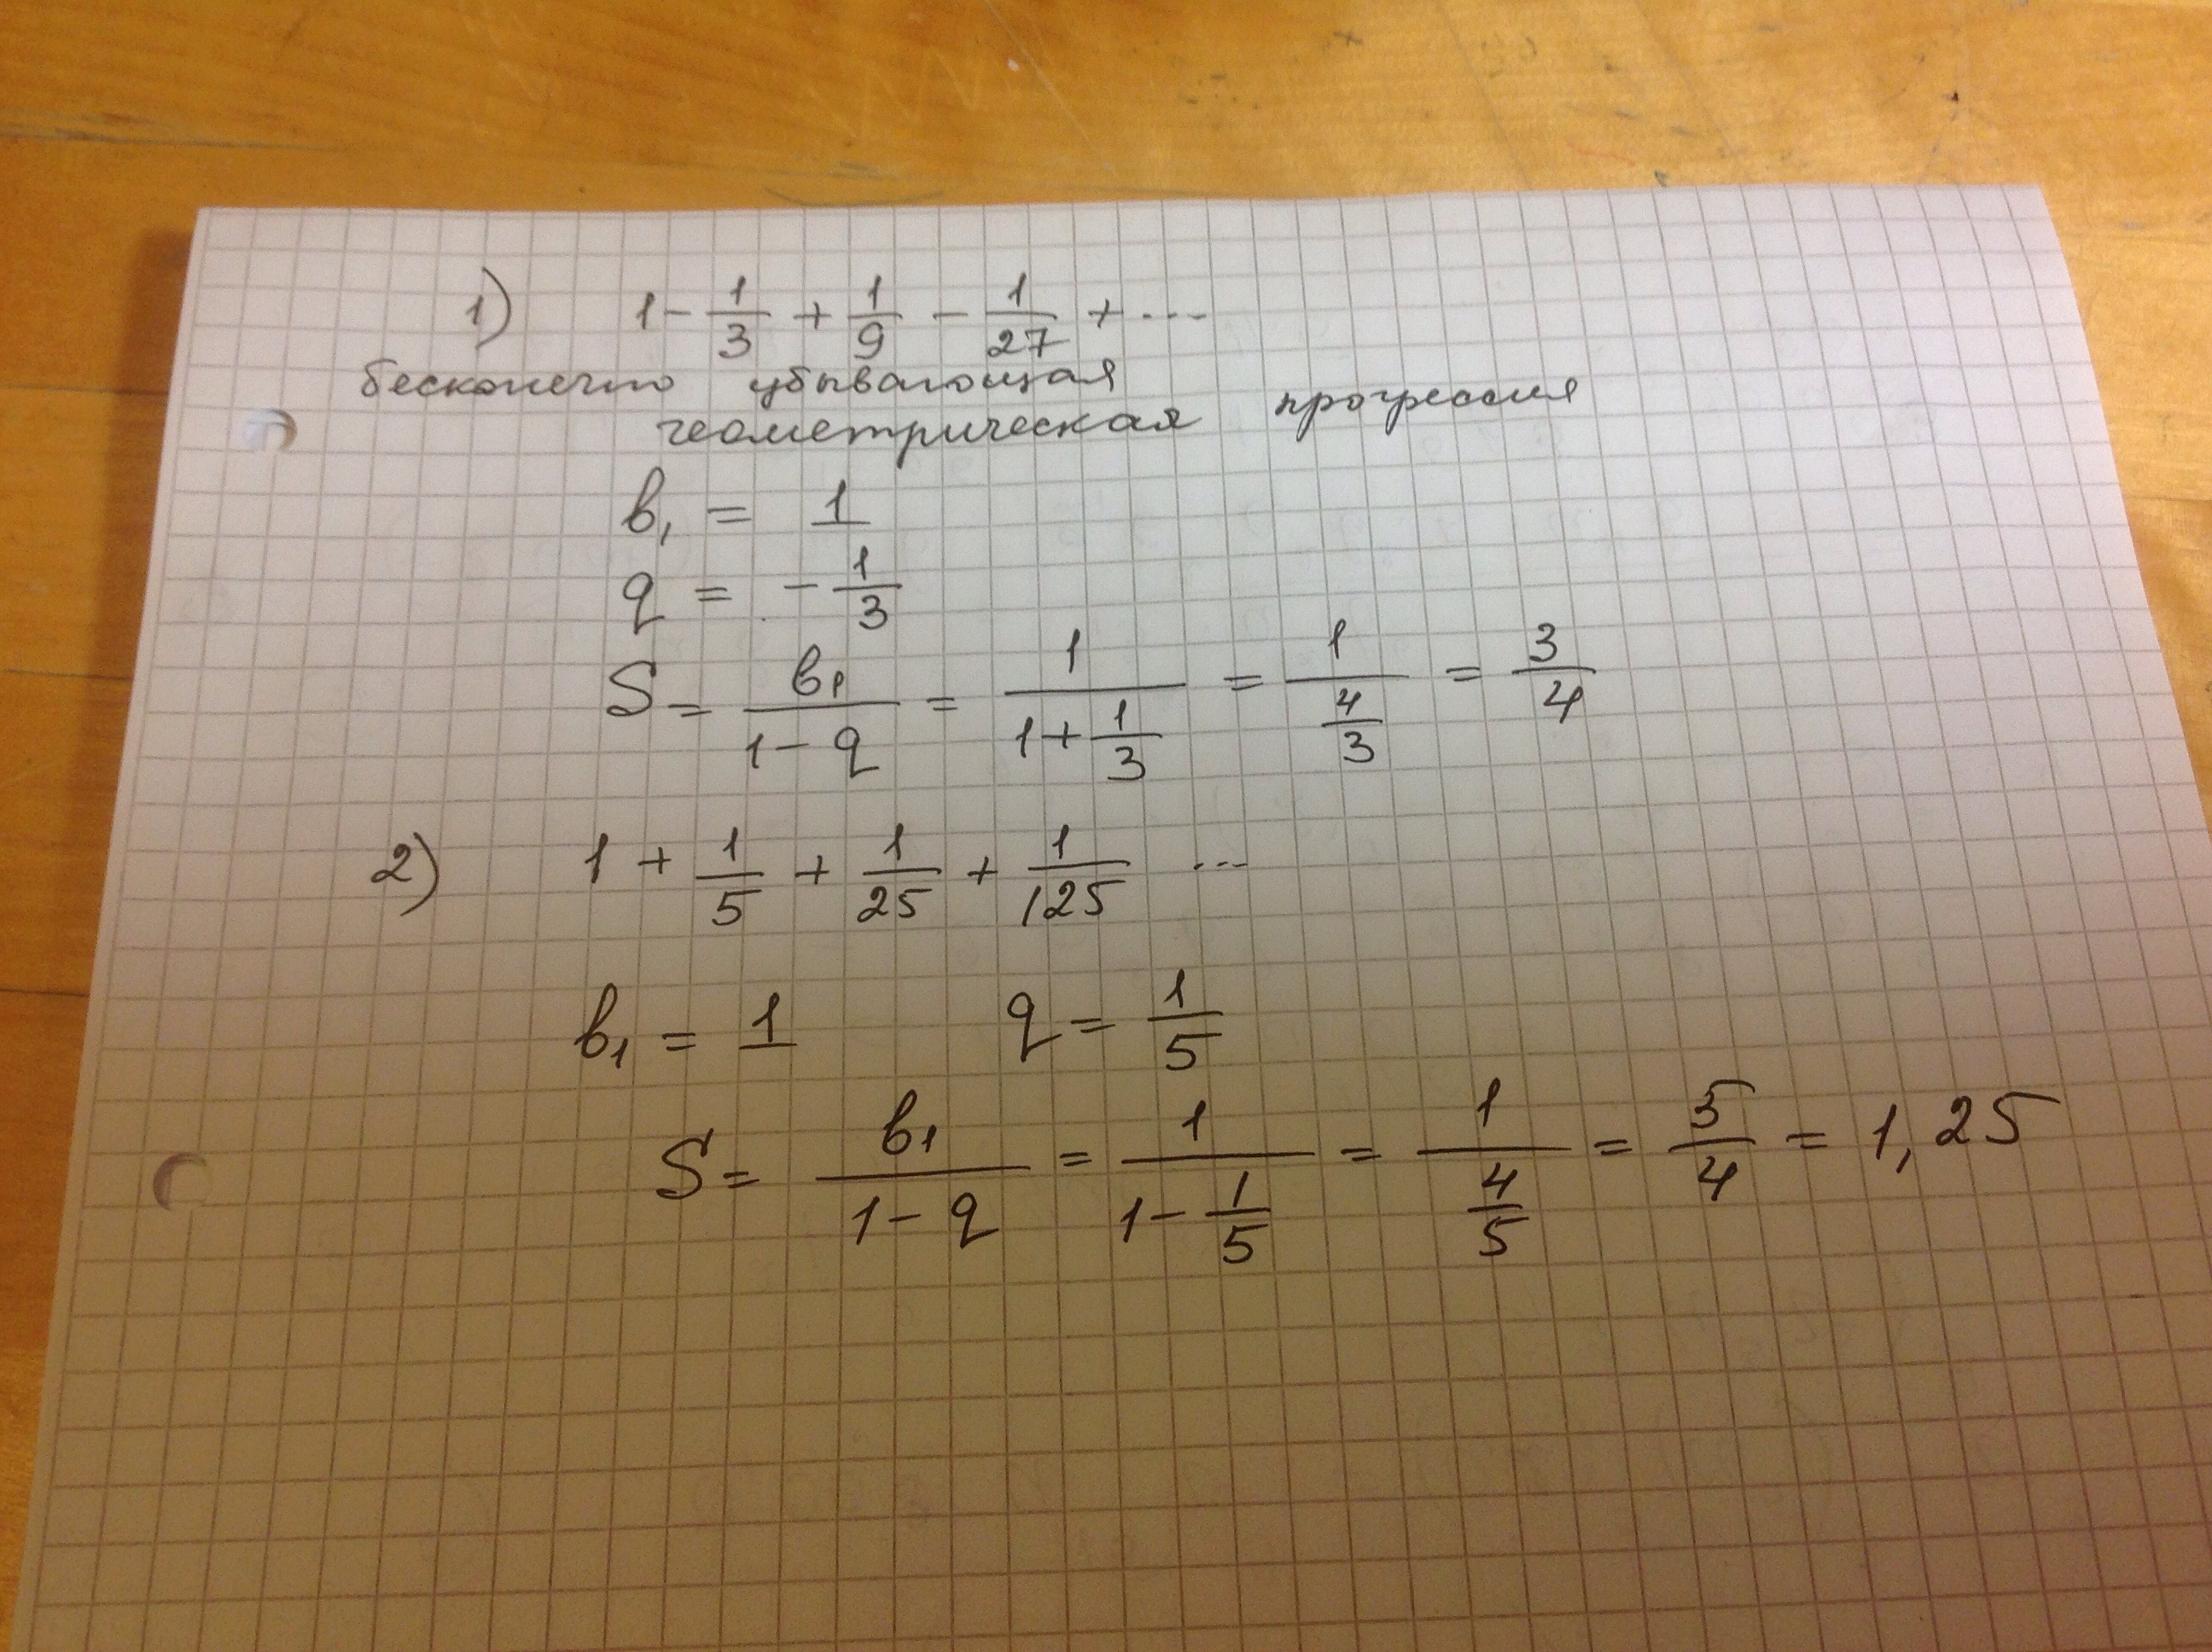 1) 1 - 1/3 + 1/9 - 1/27 + ...
бесконечно убывающая
геометрическая прогрессия
b₁ = 1
q = - 1/3
S = b₁/(1 - q) = 1/(1 + 1/3) = 1/(4/3) = 3/4
2) 1 + 1/5 + 1/25 + 1/125 ...
b₁ = 1 q = 1/5
S = b₁/(1 - q) = 1/(1 - 1/5) = 1/(4/5) = 5/4 = 1,25